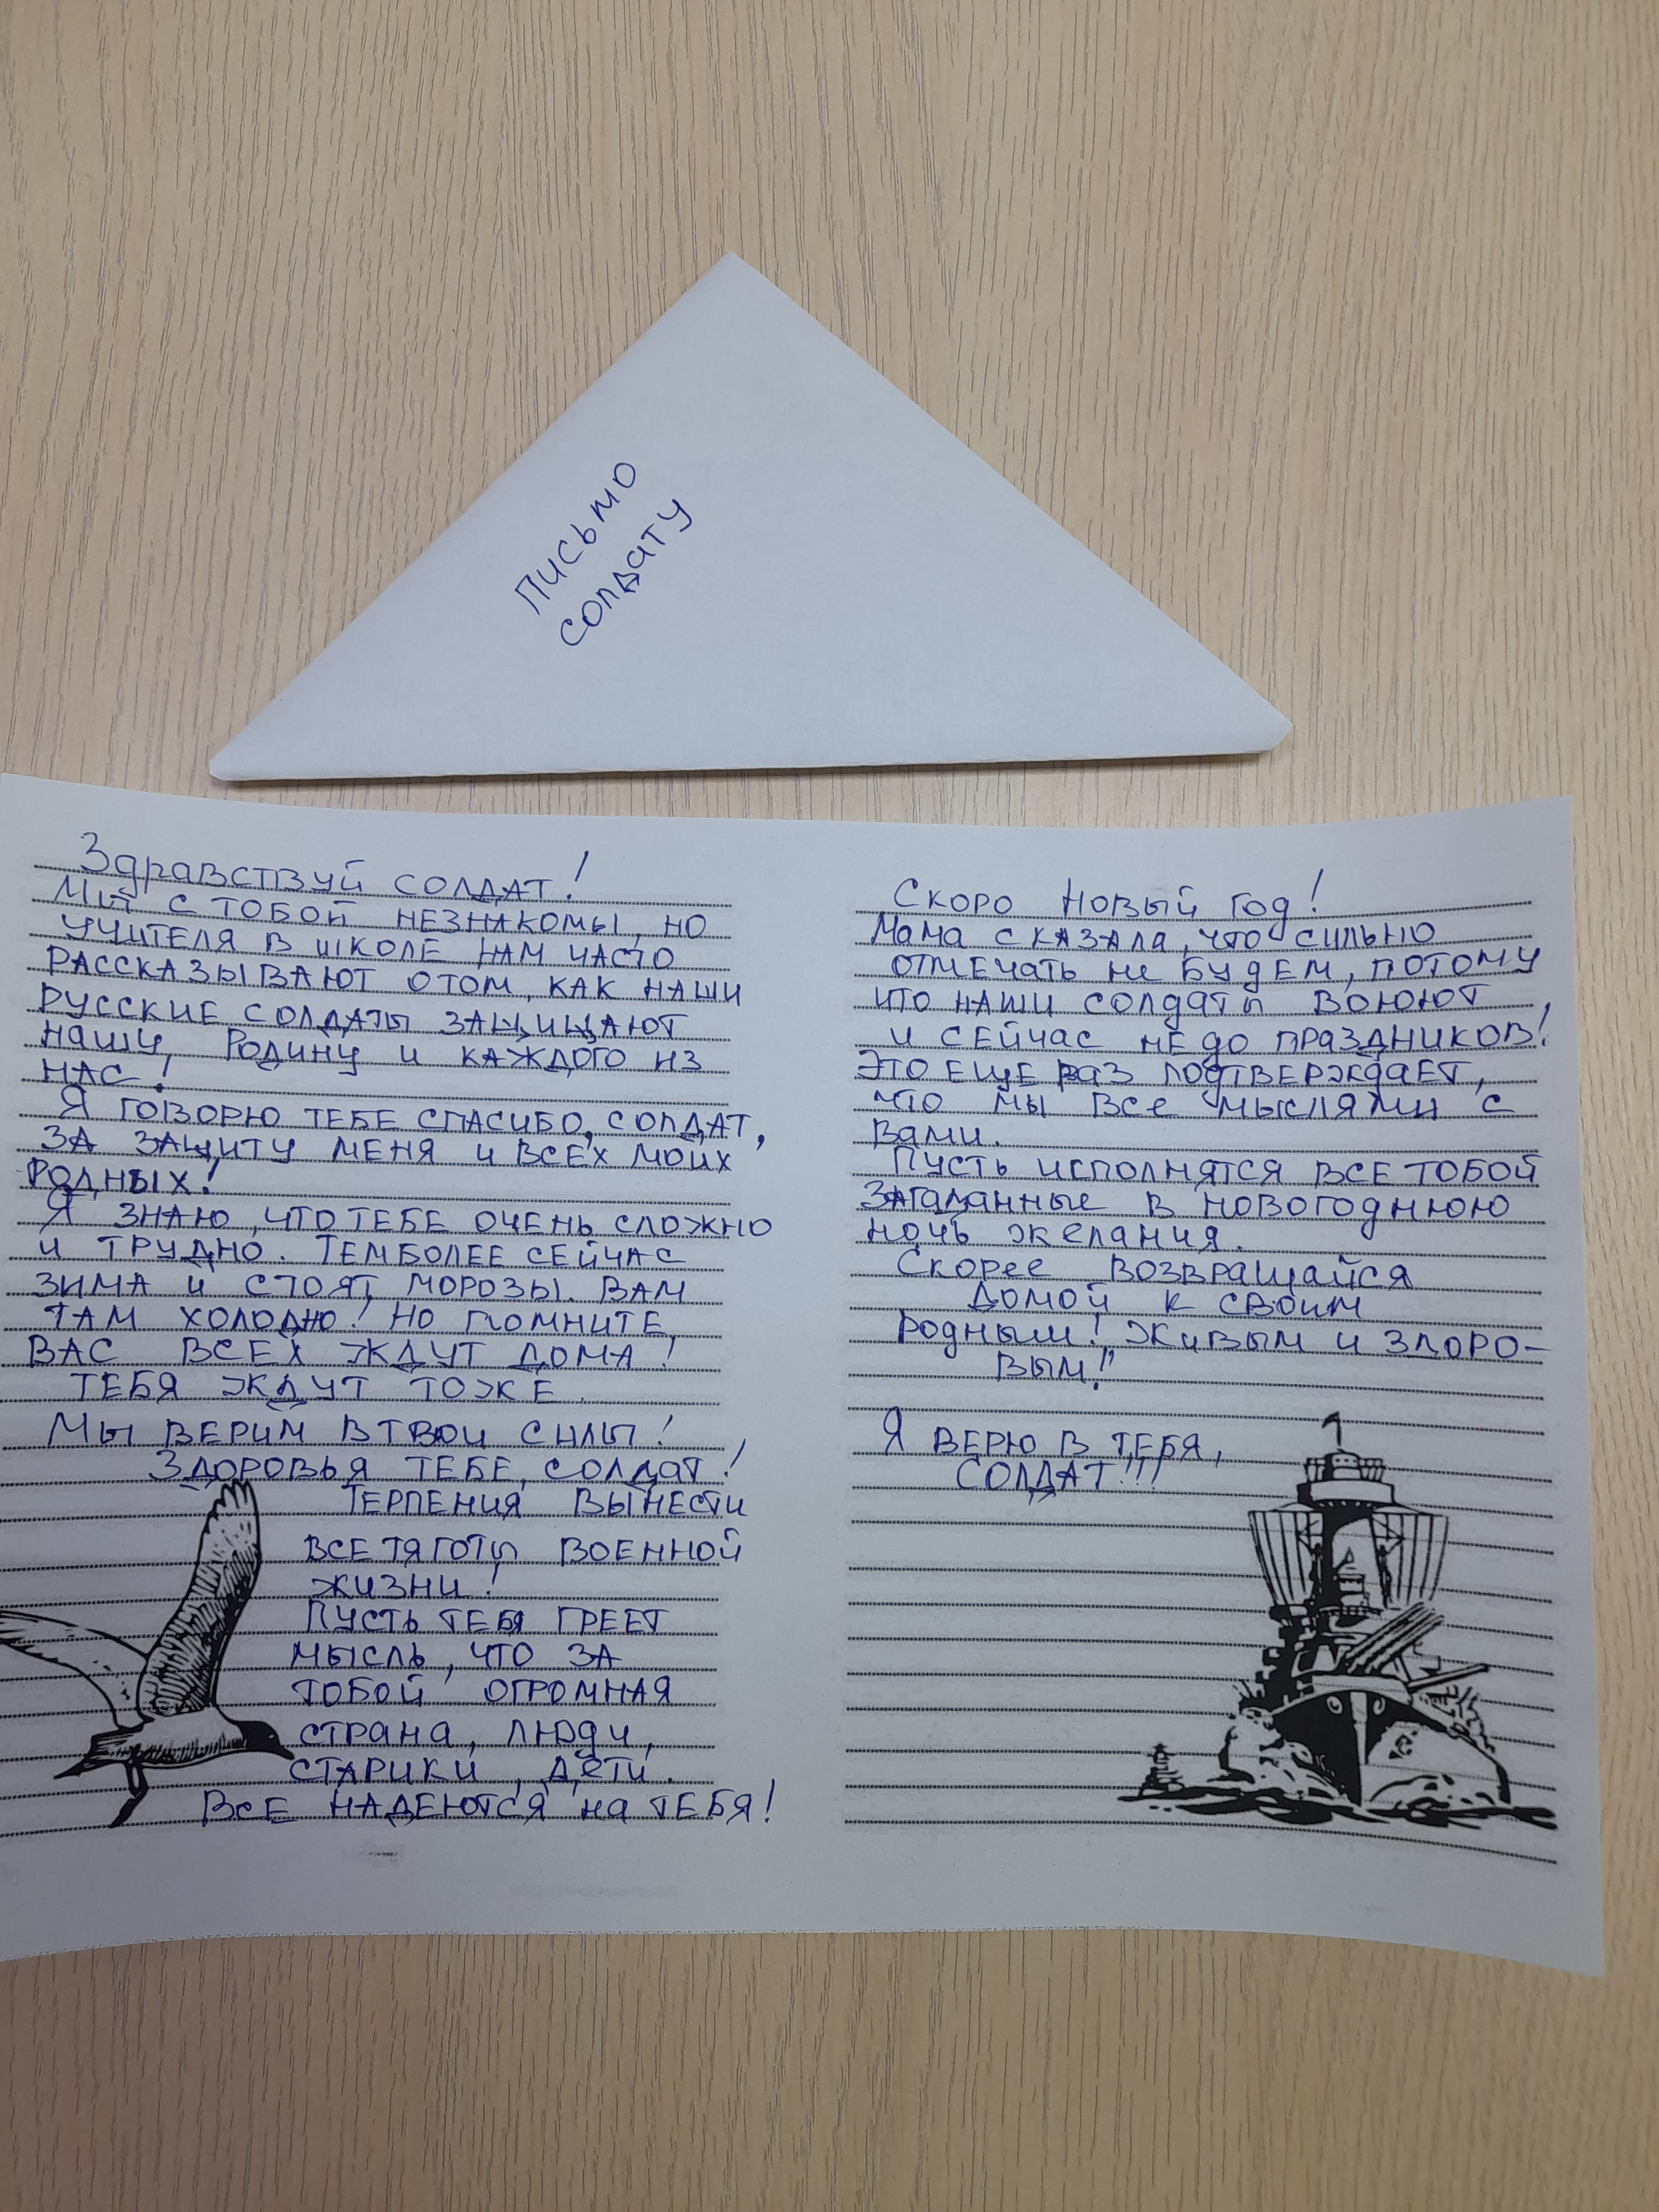 Письмо
солдату
Здравствуй солдат!
Мы с тобой незнакомы, но
учителя в школе нам часто
рассказывают о том, как наши
русские солдаты защищают
нашу Родину и каждого из
нас!
Я говорю тебе спасибо, солдат,
за защиту меня и всех моих
родных!
Я знаю, что тебе очень сложно
и трудно. Темболее сейчас
зима и стоят морозы. Вам
там холодно! Но помните,
вас всех ждут дома!
Тебя ждут тоже.
Мы верим в твои силы!
Здоровья тебе, солдат!
Терпения вынести
все тяготы военной
жизни!
Пусть тебя греет
мысль, что за
тобой огромная
страна, люди,
старики, дети.
Все надеются на тебя!
Скоро Новый год!
Мама сказала, что сильно
отмечать не будем, потому
что наши солдаты воюют
и сейчас не до праздников!
Это еще раз подтверждает,
что мы все мыслями с
вами.
Пусть исполнятся все тобой
загаданные в новогоднюю
ночь желания.
Скорее возвращайся
домой к своим
родным! Живым и здоро-
вым!
Я верю в тебя,
солдат!!!